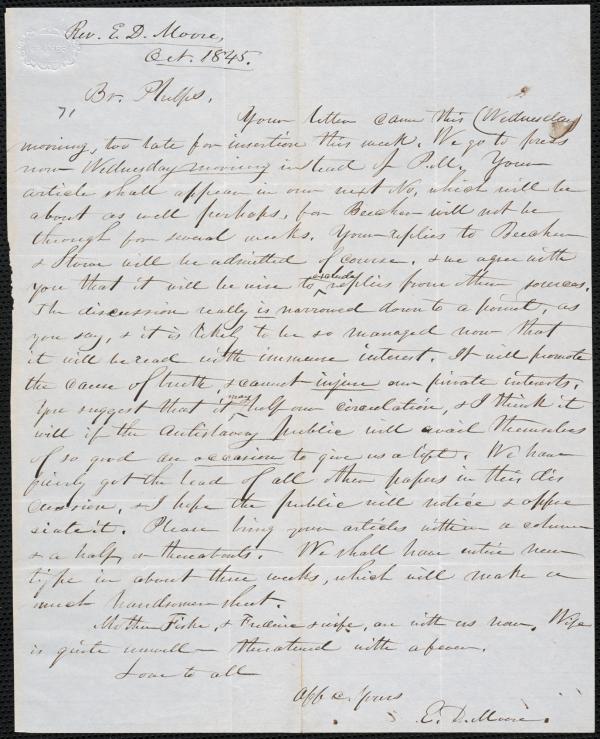 Rev. E. D. Moore,
Oct. 1845.
Br. Phelps,
71
Your letter came this (Wednesday)
morning, too late for insertion this week. We go to press
now Wednesday morning instead of P.M. Your
article shall appear in our next No, which will be
about as well perhaps, for Beecher will not be
through for several weeks. Your replies to Beecher
& Stowe will be admitted of course, & we agree with
you that it will be wise to exclude replies from other sources.
The discussion really is narrowed down to a point, as
you say, & it is likely to be so managed now that
it will be read with immense interest. It will promote
the cause of truth, & cannot injure our private interests.
You suggest that it may help our circulation, & I think it
will if the Antislavery public will avail themselves
of so good an occasion to give us a lift. We have
fairly got the lead of all other papers in this dis
cussion, & I hope the public will notice & appre
ciate it. Please bring your articles within a column
& a half, or thereabouts. We shall have entire new
type in about three weeks, which will make a
much handsomer sheet.
Mother Fiske, & & wife, are with us now. Wife
is quite unwell - threatened with a fever.
Love to all
Aff &c. Yours
E. D. Moore.